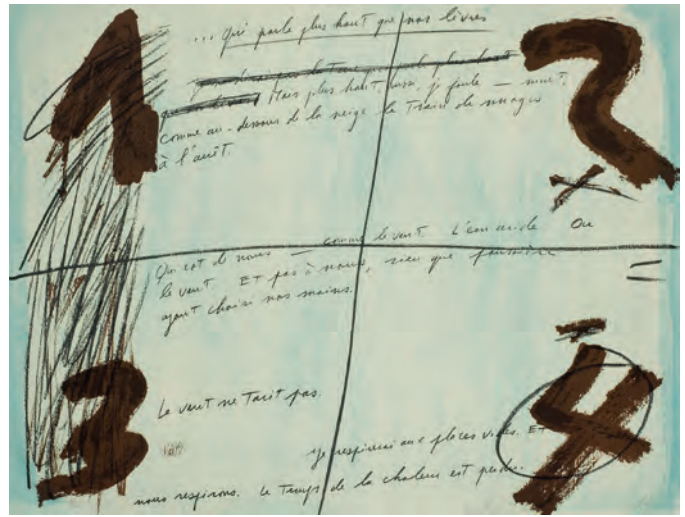 1
2
... Qui parle plus haut que nos livres
Mais plus haut, aussi, je parle — muet,
comme au-dessous de la neige le train de nuages
à l'arrêt.
×
Qui est de nous — comme le vent. L'eau aride Ou
le vent. Et pas à nous, rien que poussière
ayant choisi nos mains.
=
3
4
Le vent ne tarit pas.
Je respirai aux places vides. Et
nous respirons. Le temps de la chaleur est